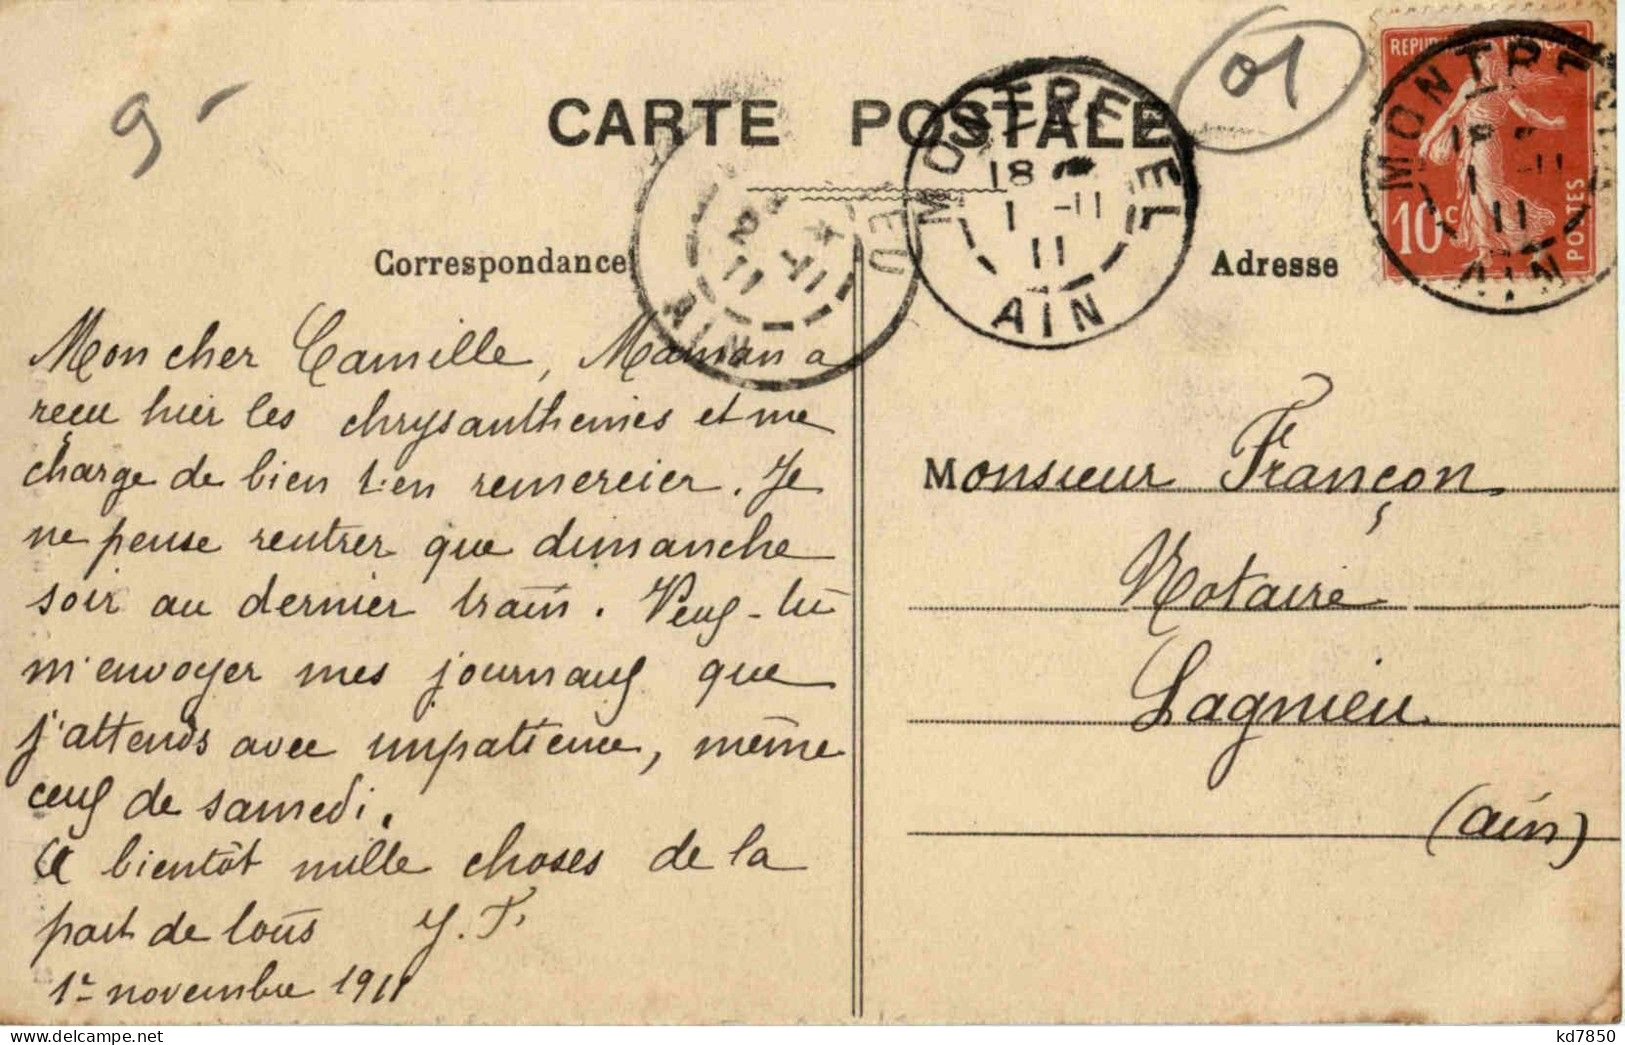 9-
01
CARTE POSTALE
REPUBLIQUE FRANÇAISE
10c
POSTES
MONTREVEL
18
1 -11
11
AIN
MONTREVEL
18
1 -11
11
AIN
EU
2 -11
11
AIN
Correspondance
Adresse
Mon cher Camille, Maman a
reçu hier les chrysanthemes et me
charge de bien t'en remercier. Je
ne pense rentrer que dimanche
soir au dernier train. Veux-tu
m'envoyer mes journaux que
j'attends avec impatience, même
ceux de samedi.
A bientôt mille choses de la
part de tous Y. F.
1er novembre 1911
Monsieur Françon
Notaire
Lagnieu
(Ain)
kd7850